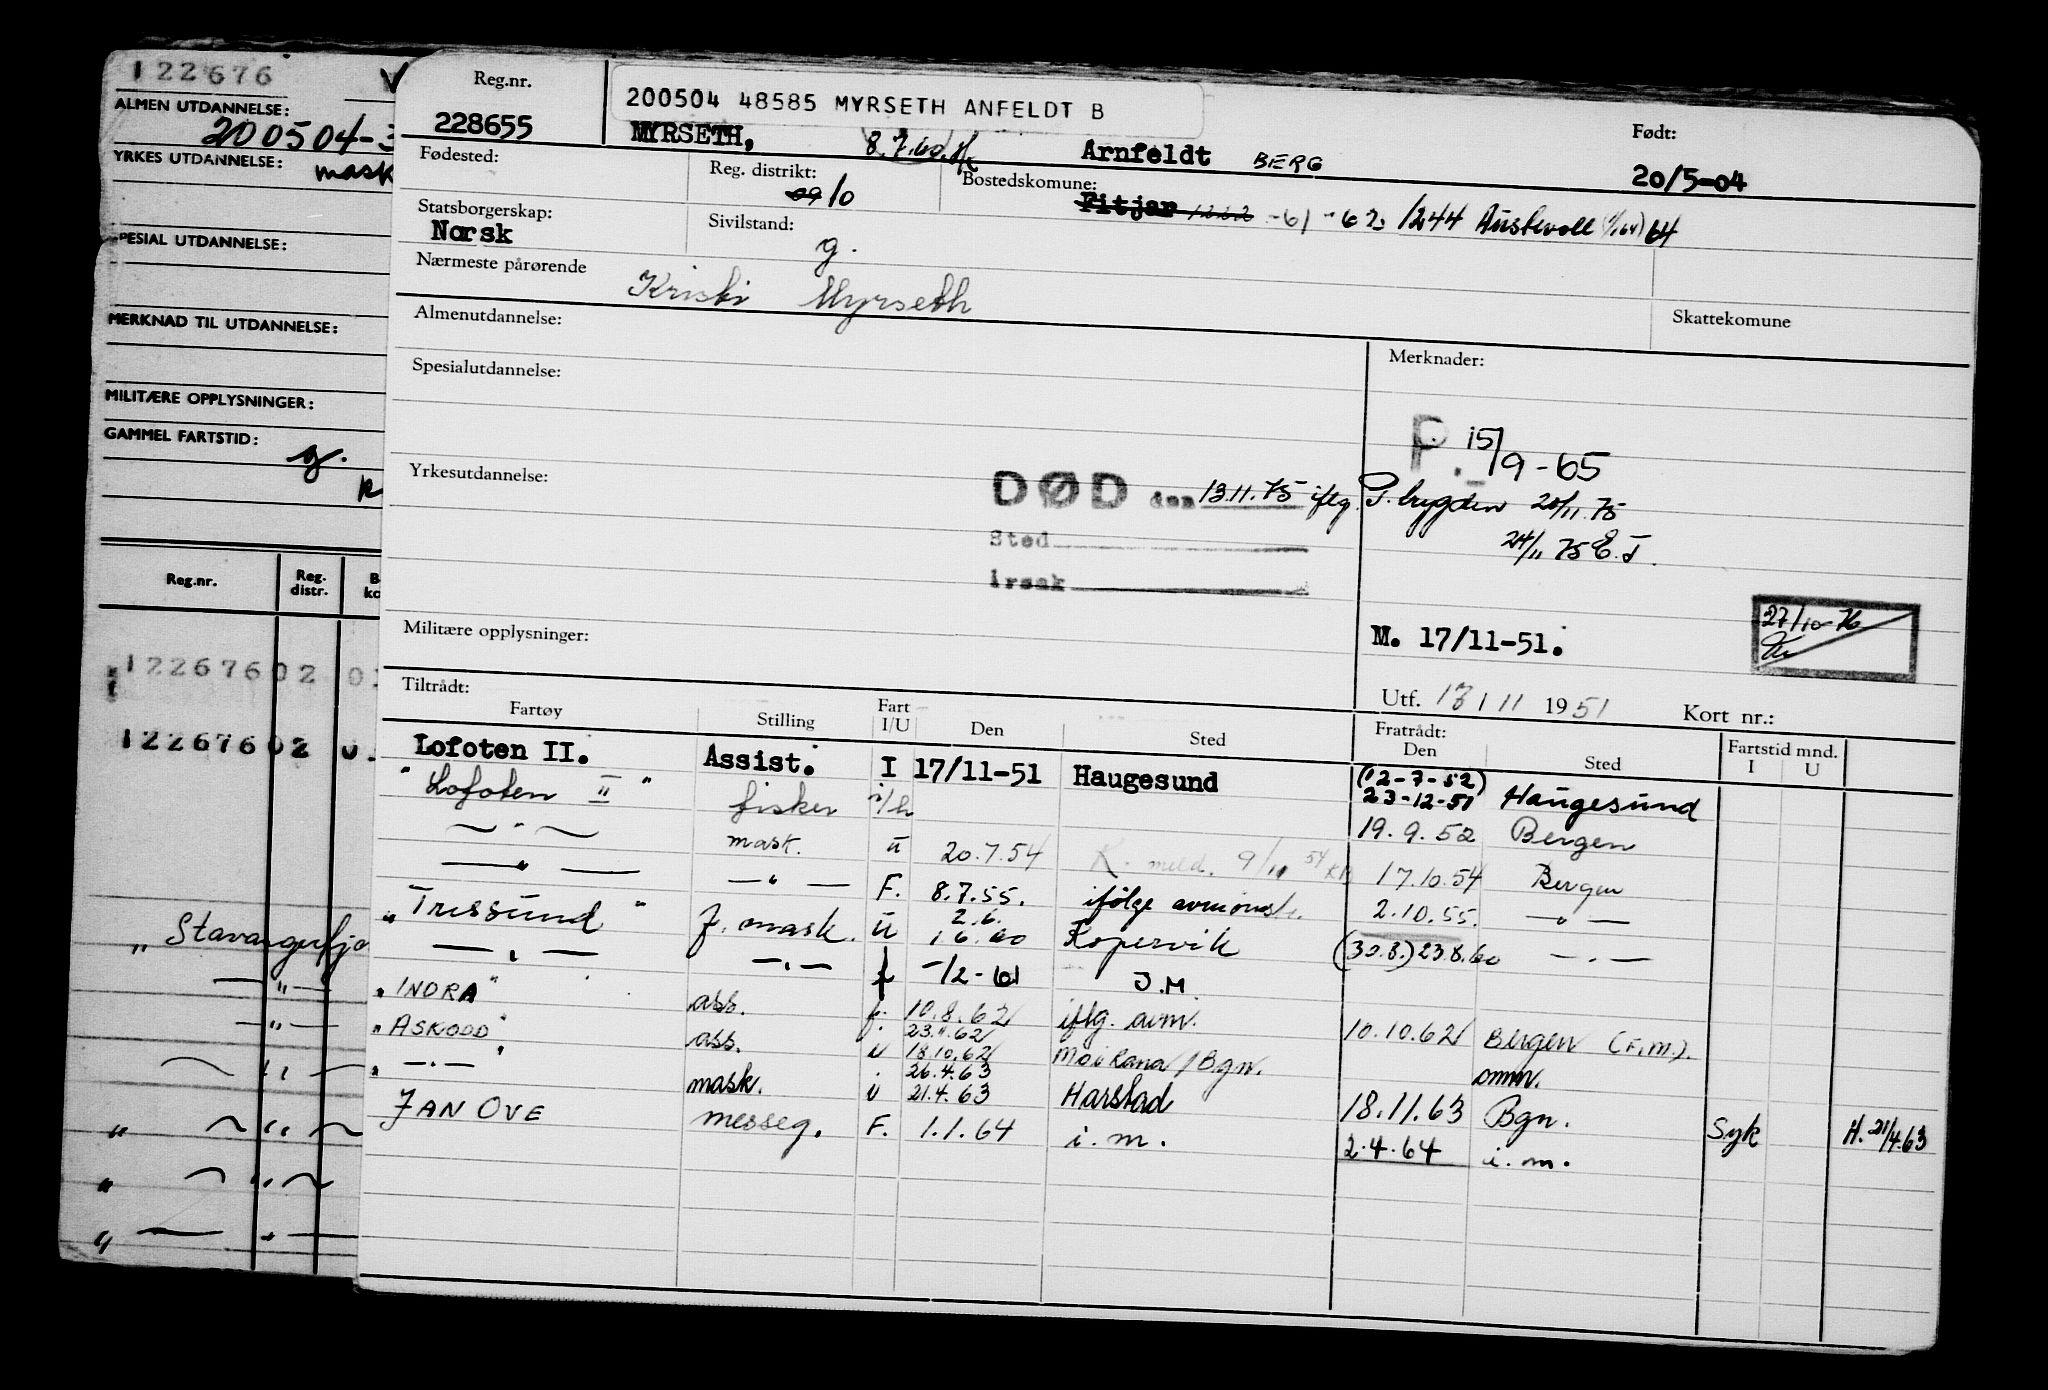 122676
ALMEN UTDANNELSE:
200504-3
YRKES UTDANNELSE: mask
SPESIAL UTDANNELSE:
MERKNAD TIL UTDANNELSE:
MILITÆRE OPPLYSNINGER:
GAMMEL FARTSTID:
g.
Reg.nr. Reg. distr.
12267602
12267602
" Stavangerfjo
Reg.nr.
228655
200504 48585 MYRSETH ANFELDT B
MYRSETH, 8.7.60 Arnfeldt BERG
Født:
20/5-04
Fødested:
Reg. distrikt:
09 10
Bostedskomune:
Fitjar 1222 -61 -63 1244 Austevoll 64
Statsborgerskap:
Norsk
Sivilstand:
g.
Nærmeste pårørende
Kristi Myrseth
Skattekomune
Almenutdannelse:
Spesialutdannelse:
Merknader:
P. 15/9-65
Yrkesutdannelse:
DØD den 13.11.75 iflg. P. trygden 20/11.75
24/11 75 E.J.
Sted
Årsak
27/10-76
Militære opplysninger:
M. 17/11-51.
Utf. 17/11 1951 Kort nr.:
Tiltrådt: Fratrådt: Fartstid mnd.
Fartøy Stilling Fart I/U Den Sted Den Sted I U
Lofoten II. Assist. I 17/11-51 Haugesund (12-7-52) 23-12-51 Haugesund
"Lofoten II" fisker i/h 19.9.52 Bergen
— " — mask. u 20.7.54 K. meld. 9/11 54 17.10.54 Bergen
— " — — " — F. 8.7.55. ifølge avmønst. 2.10.55. — " —
"Trissund" f. mask. u 2.6. 1.6.60 Kopervik (30.8.) 23.8.60 — " —
— " — — " — f -/2-61 I.M.
"INDRA" ass. f. 10.8.62 iflg. avm. 10.10.62 Bergen (F.M.).
"ASKODD" ass. u 23.11.62 18.10.62 Mo i Rana/Bgn. omm.
" — " — " mask. u 26.4.63 21.4.63 Harstad 18.11.63 Bgn. Syk H. 21/4.63
JAN OVE messeg. F. 1.1.64 i.m. 2.4.64 i.m.